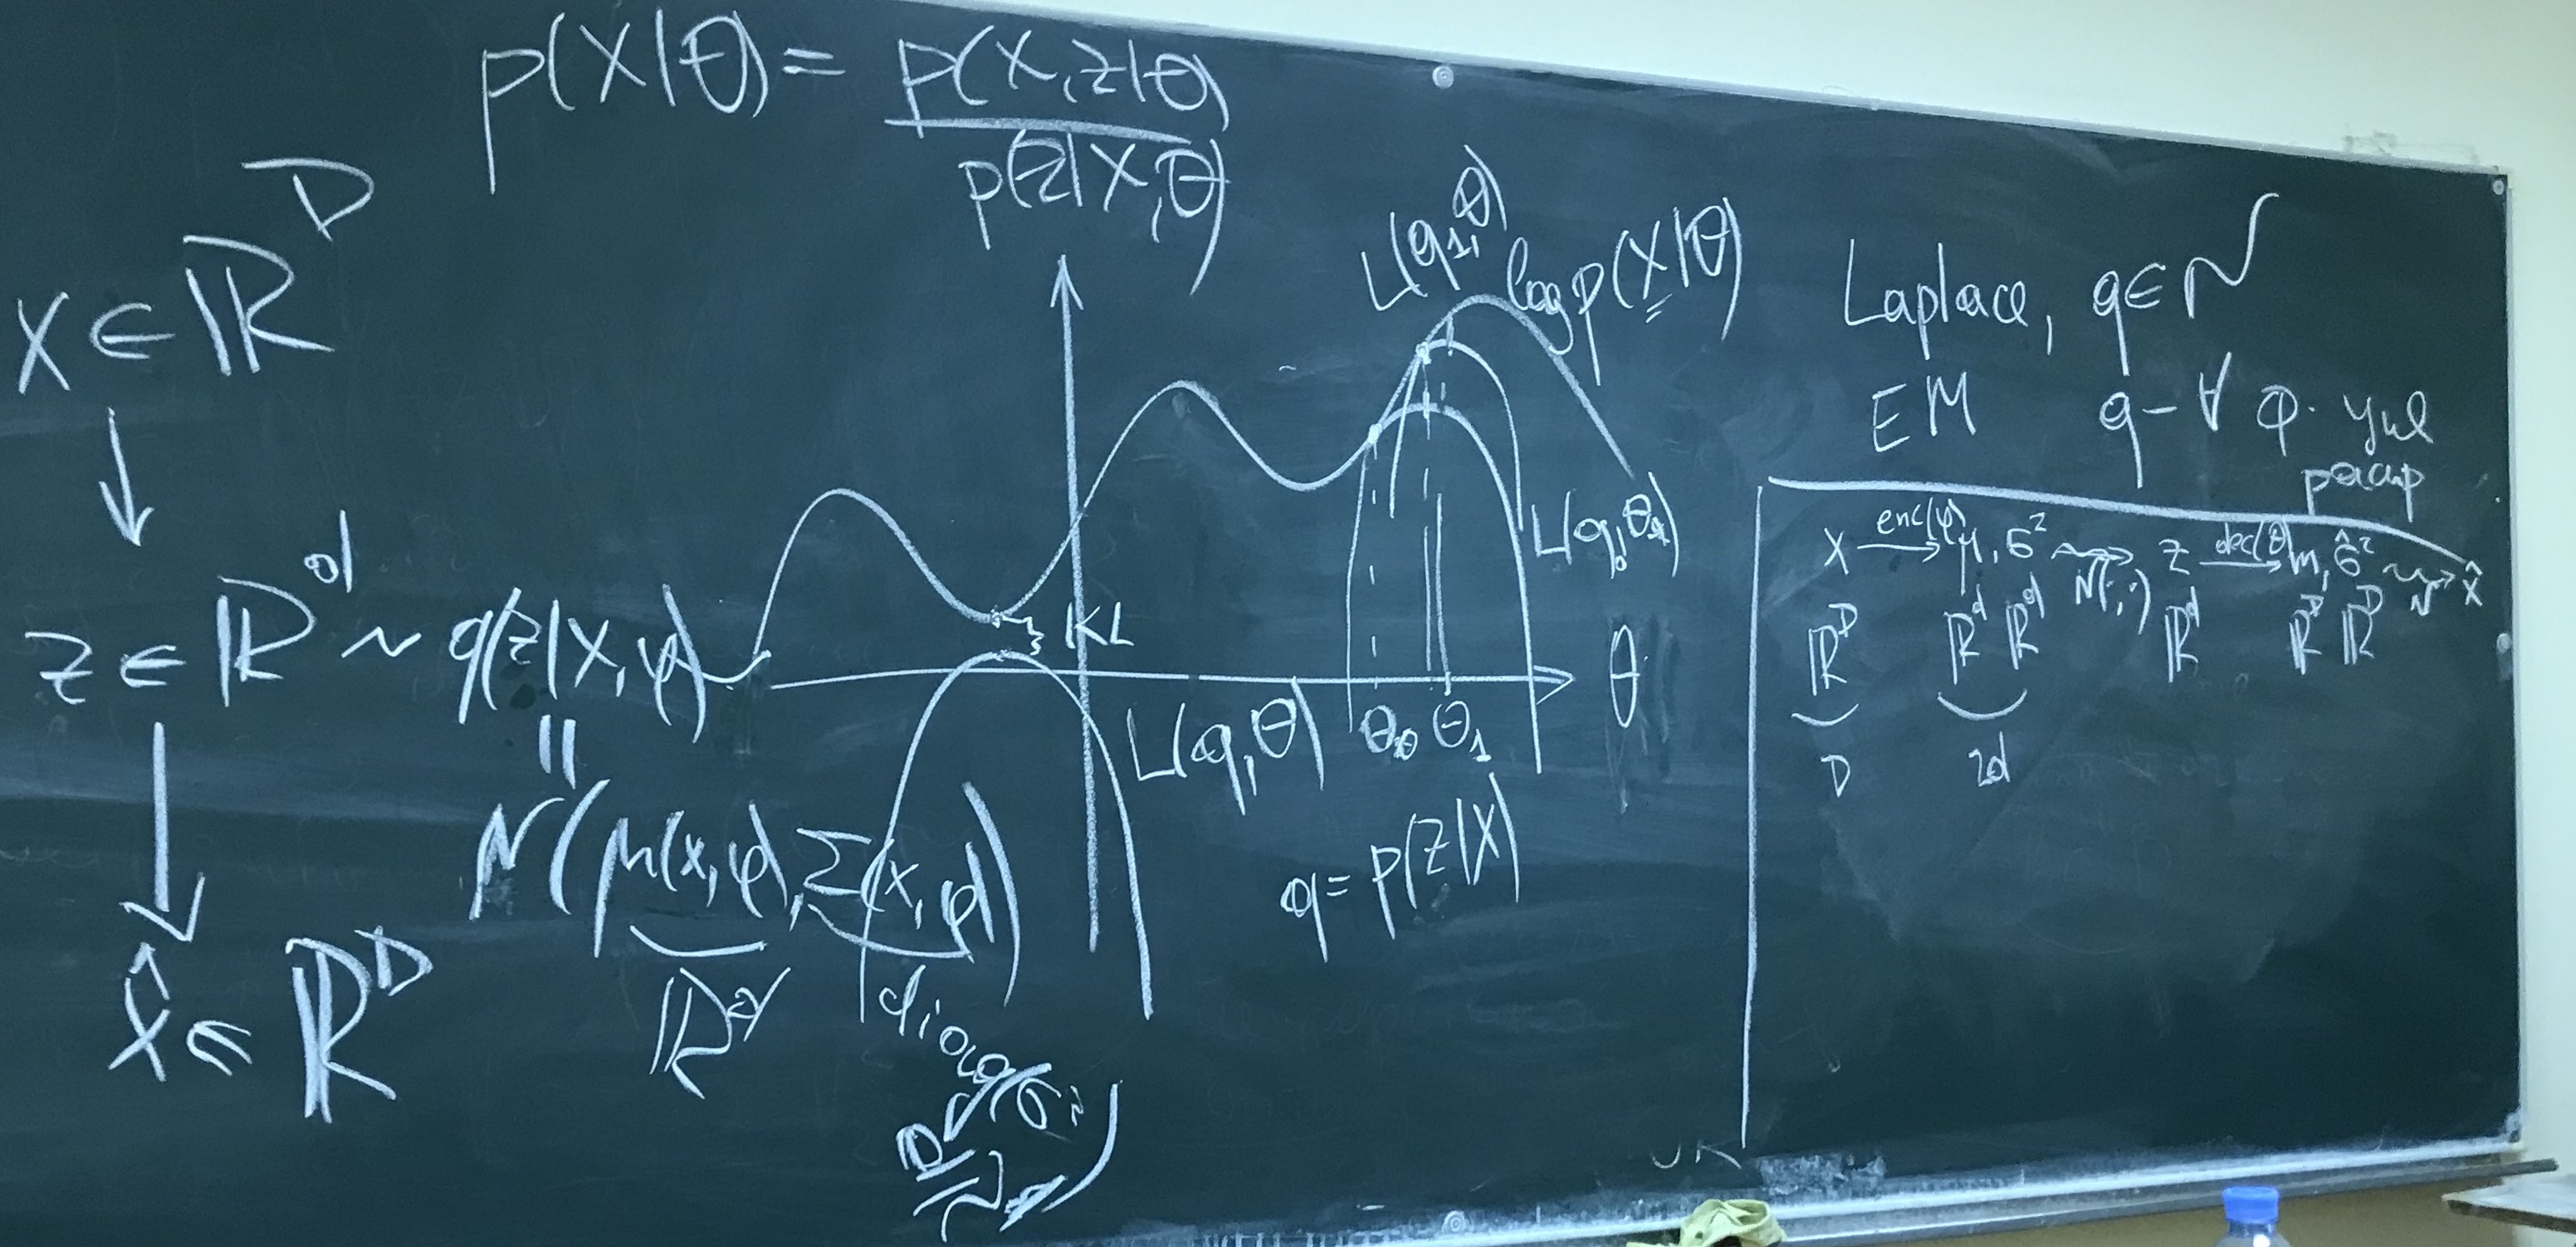 p(X|θ) = p(X,Z|θ) / p(Z|X,θ)
x ∈ ℝ^D
↓
z ∈ ℝ^d ~ q(z|x,φ)
||
N(μ(x,φ), Σ(x,φ))
ℝ^d
↓
x̂ ∈ ℝ^D
L(q₁,θ)
log p(X|θ)
KL
L(q,θ)
θ₀ θ₁
θ
q = p(Z|X)
Laplace, q ∈ N
EM q - ∀
x enc(φ)→ μ, σ² ⇝ N(·,·) z dec(θ)→ m, σ̂² ⇝ N x̂
ℝ^D ℝ^d ℝ^d ℝ^d ℝ^D ℝ^D
D 2d